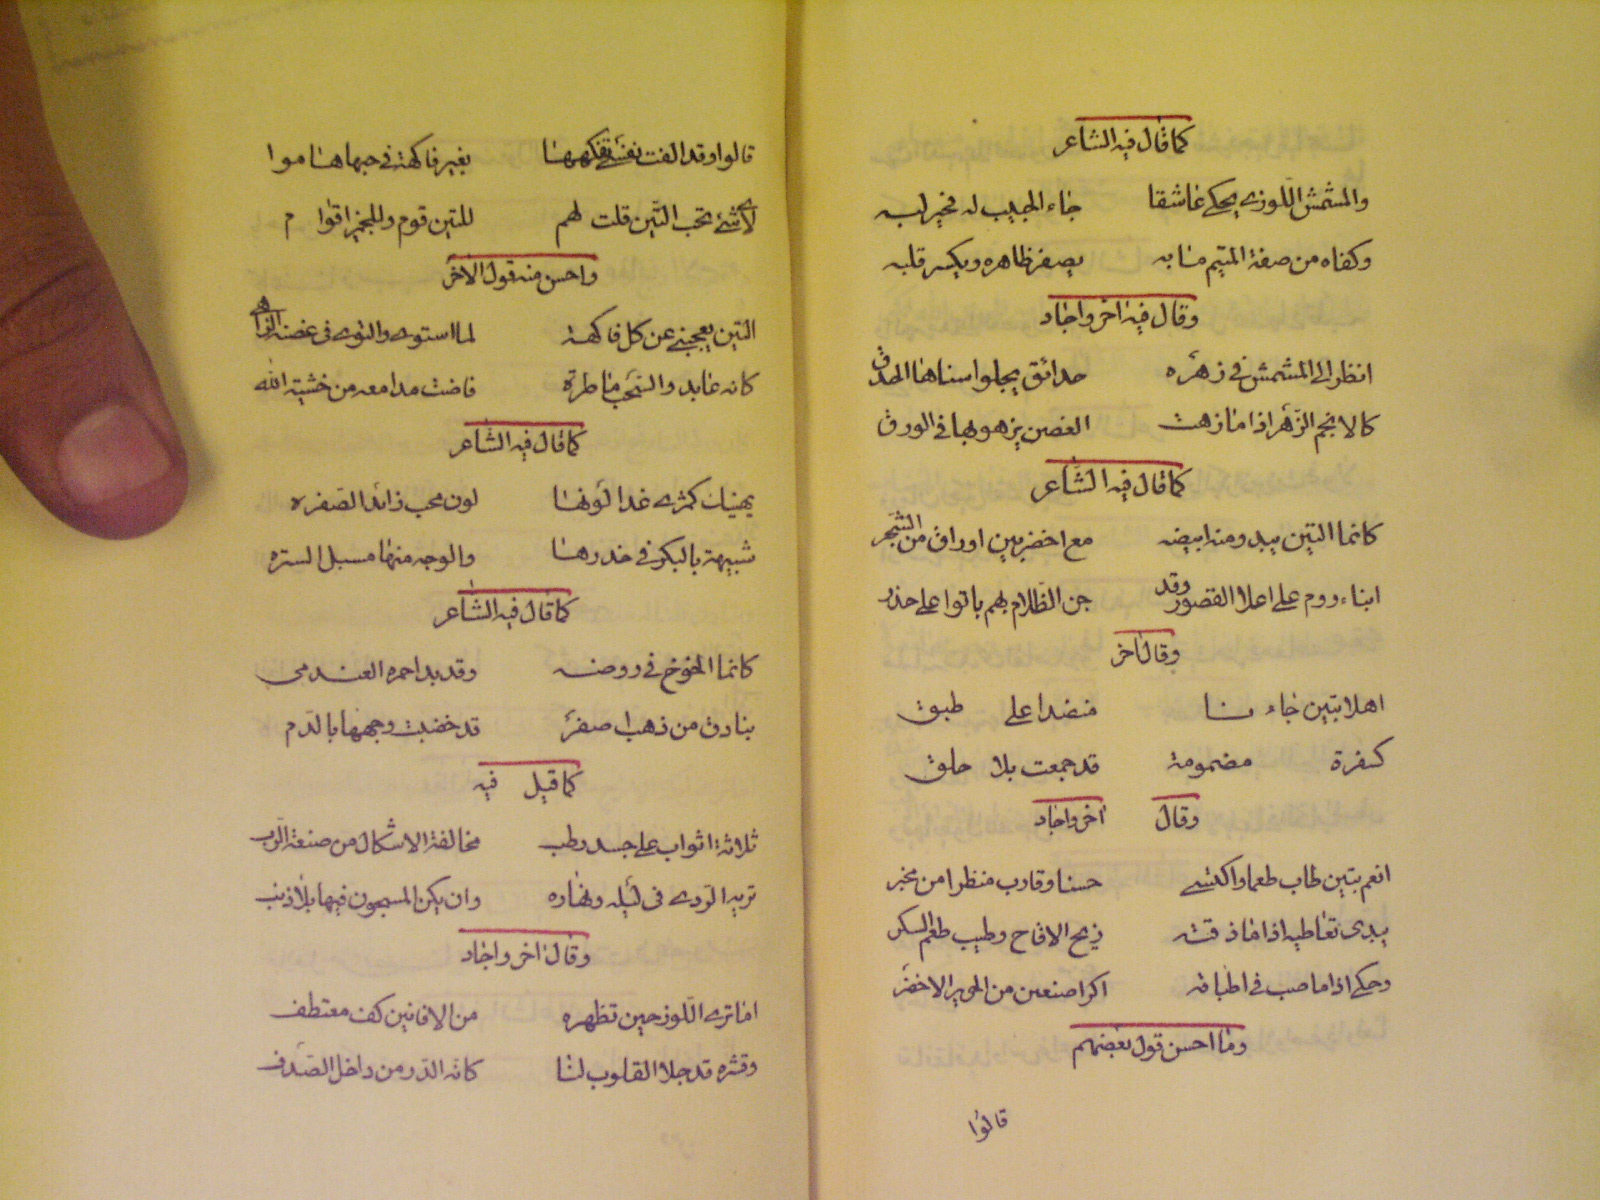 كما قال فيه الشاعر
والمشمش اللوزى يحكى عاشقا جاء الحبيب له فخير لبه
وكفاه من صفة المتيم منابه يصفر ظاهره ويكسر قلبه
وقال فيه اخر واجاد
انظر الى المشمش فى زهره حدائق يجلوا سناها الحدق
كالانجم الزهر اذا ما زهت الغصن يزهو بها فى الورق
كما قال فيه الشاعر
كانما التين يبدو منه ابيضه مع اخضر بين اوراق من الشجر
ابناء روم على اعلا القصور وقد جن الظلام بهم باتوا على حذر
وقال اخر
اهلا بتين جاءنا منضدا على طبق
كسفرة مضمومة قد جمعت بلا حلق
وقال اخر واجاد
انعم بتين طاب طعما واكتسى حسنا وقارب منظرا من مخبر
يبدى تعاطيه اذا ما ذقته ريح الاقاح وطيب طعم السكر
وحكى اذا ما صب فى اطباقه اكرا صنعن من الحرير الاخضر
وما احسن قول بعضهم
قالوا
قالوا وقد الفت تفكهها بغير فاكهة فى حبها هاموا
لاى شئ تحب التين قلت لهم للتين قوم وللجميز اقوام
واحسن منه قول الاخر
التين يعجبنى عن كل فاكهة لما استوى والتوى فى غصنه الزاهى
كانه عابد والسحب ماطرة فاضت مدامعه من خشية الله
كما قال فيه الشاعر
يهنيك كمثرى غدا لونها لون محب زائد الصفره
شبيهة بالبكر فى خدرها والوجه منها مسبل الستره
كما قال فيه الشاعر
كانما الخوخ فى روضه وقد بدا حمره العندمى
بنادق من ذهب اصفر قد خضبت وجهها بالدم
كما قيل فيه
ثلاثة اثواب على جسد رطب مخالفة الاشكال من صنعة الرب
تريه الردى فى ليله ونهاره وان يكن المسجون فيها بلا ذنب
وقال اخر واجاد
اما ترى اللوز حين تظهره من الافانين كف مقتطف
وقشره قد جلا القلوب لنا كانه الدر من داخل الصدف